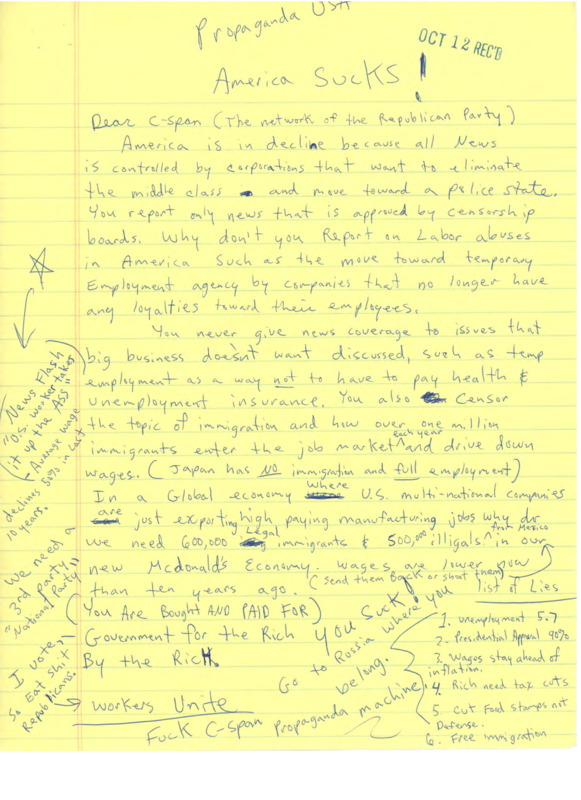 Propaganda USA
OCT 12 REC'D
America Sucks!
Dear C-span (The network of the Republican Party)
America is in decline because all News
is controlled by corporations that want to eliminate
the middle class and move toward a police state.
You report only news that is approved by censorship
boards. Why don't you Report on Labor abuses
in America Such as the move toward temporary
Employment agency by companies that no longer have
any loyalties toward their employees.
You never give news coverage to issues that
big business doesn't want discussed, such as temp
employment as a way not to have to pay health &
unemployment insurance. You also Censor
the topic of immigration and how over one million
immigrants enter the job market each year and drive down
wages. (Japan has NO immigration and full employment)
In a Global economy where U.S. multi-national companies
are just exporting high paying manufacturing jobs why do
we need 600,000 Legal immigrants & 500,000 illigals from Mexico in our
new Mcdonald's Economy. wages are lower now
than ten years ago. (Send them Back or shoot them)
(You Are Bought AND PAID FOR)
Government for the Rich
By the Rich.
workers Unite
You Suck!
Go to Russia where you
belong.
Fuck C-span Propaganda machine
List of Lies
1. unemployment 5.7
2. Presidential Appoval 90%
3. Wages stay ahead of
inflation.
4. Rich need tax cuts
5. Cut Food stamps not
Defense.
6. Free immigration
News Flash
"U.S. worker takes
it up the Ass"
- Average wage
declines 50% in last
10 years.
We need a
3rd party
"National Party"
I vote,
So Eat shit
Republicans.